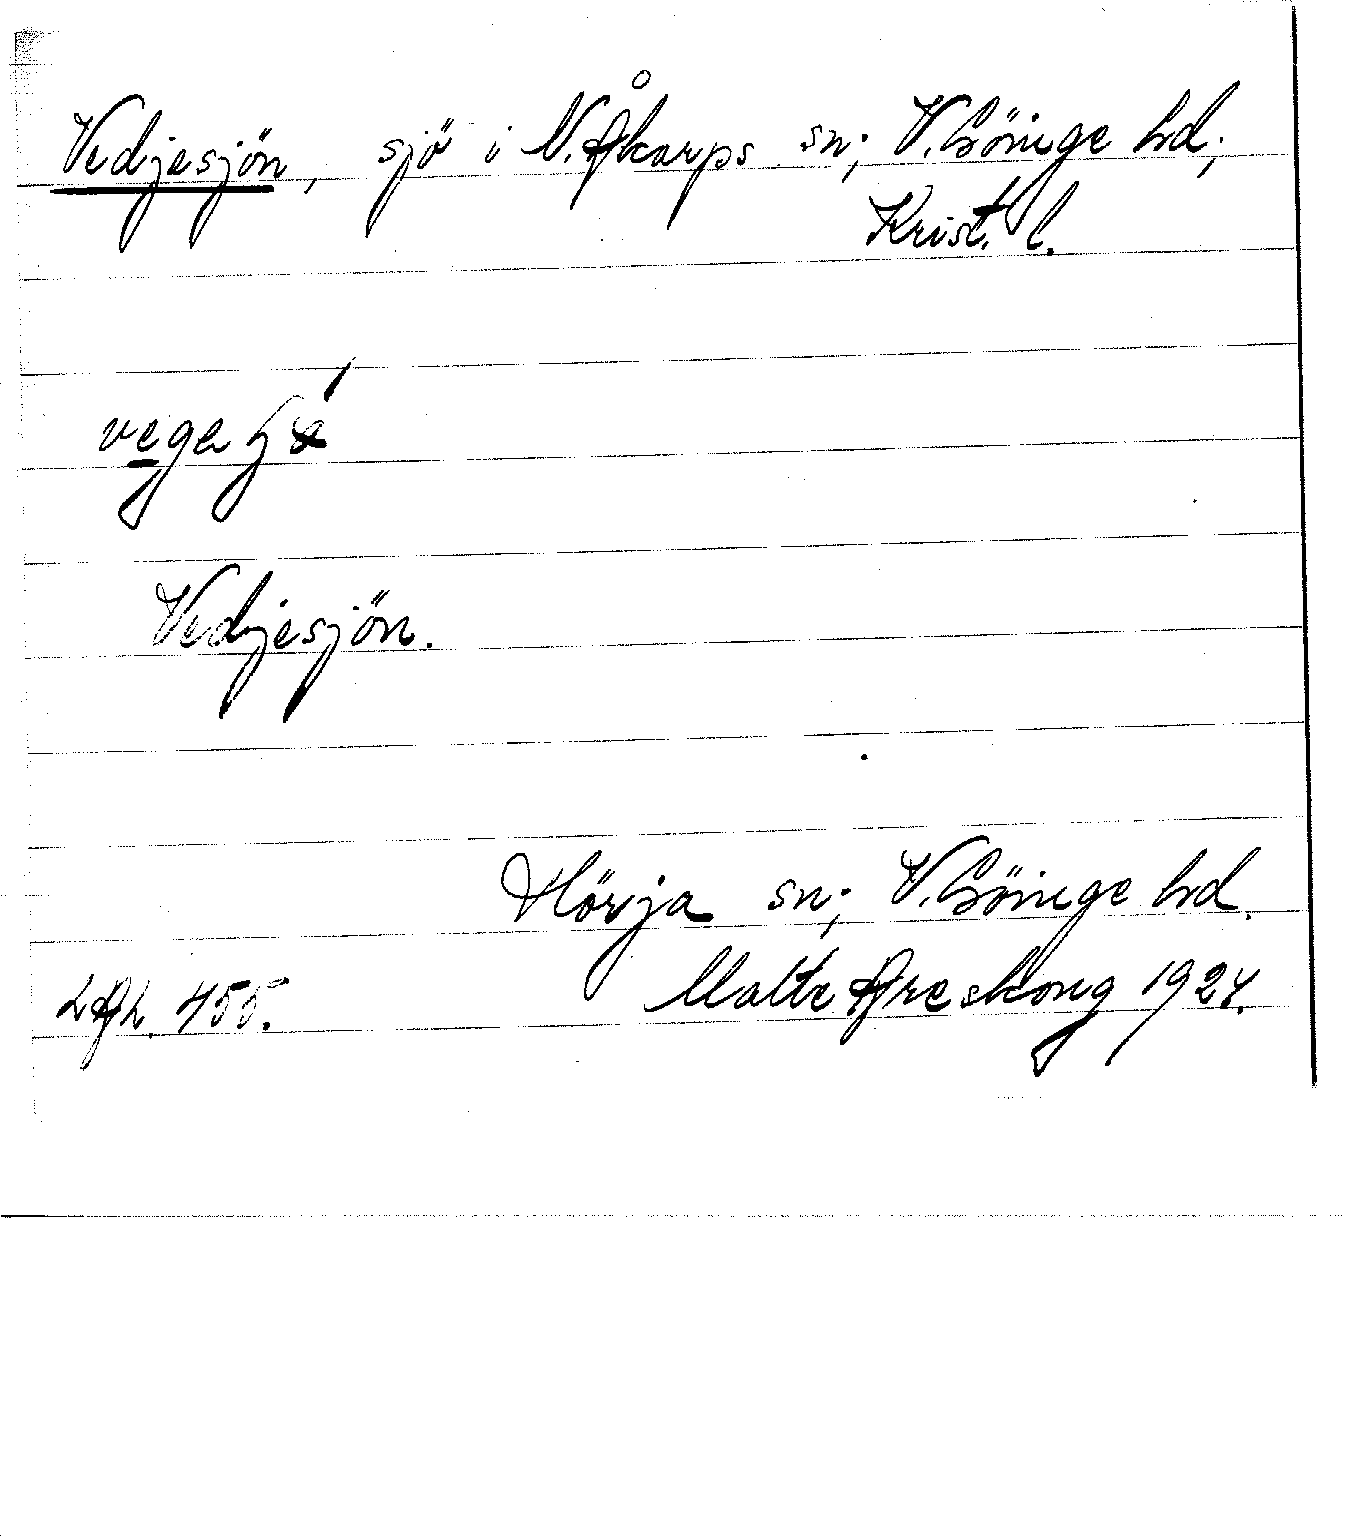 Vedjesjön, sjö i N. Åkarps sn; V. Göinge hd;
Krist. l.
Vedjesjön.
Hörja sn; V. Göinge hd.
Malte Areskoug 1924.
LAL. 455.